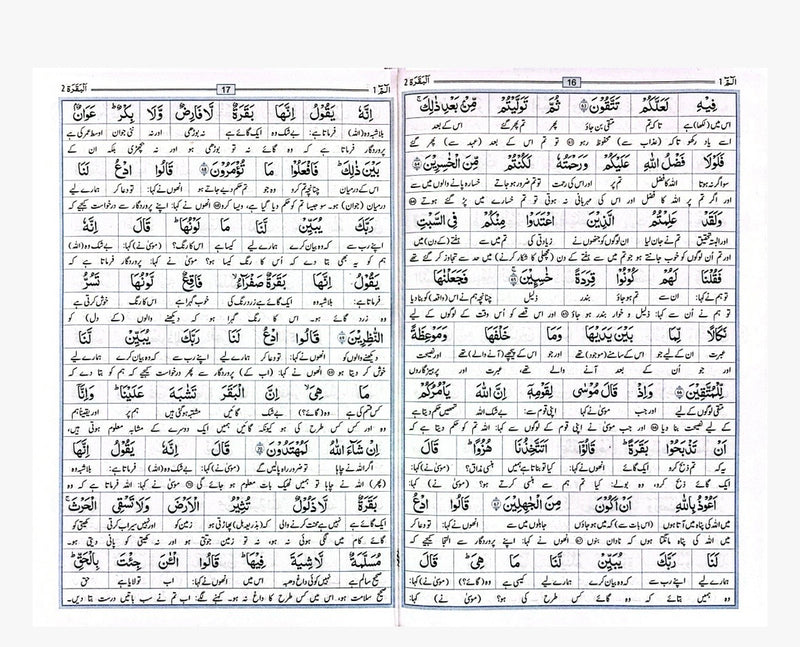 الٓمّٓ ١
16
اَلْبَقَرَة 2
فِيْهِ لَعَلَّكُمْ تَتَّقُوْنَ ٦٣ ثُمَّ تَوَلَّيْتُمْ مِّنْ بَعْدِ ذٰلِكَ ۚ
اس میں (لکھا) ہے تاکہ تم متقی بن جاؤ پھر تم پھر گئے اس کے بعد
اسے یاد رکھو تاکہ (عذاب سے) محفوظ رہو تو تم اس کے بعد (عہد سے) پھر گئے
فَلَوْلَا فَضْلُ اللّٰهِ عَلَيْكُمْ وَرَحْمَتُهٗ لَكُنْتُمْ مِّنَ الْخٰسِرِيْنَ ٦٤
سو اگر نہ ہوتا اللہ کا فضل تم پر اور اس کی رحمت تو تم ضرور ہو جاتے خسارہ پانے والوں میں سے
اور اگر تم پر اللہ کا فضل اور اس کی مہربانی نہ ہوتی تو تم خسارے میں پڑ گئے ہوتے
وَلَقَدْ عَلِمْتُمُ الَّذِيْنَ اعْتَدَوْا مِنْكُمْ فِي السَّبْتِ
اور البتہ تحقیق تم نے جان لیا ان لوگوں کو جنھوں نے زیادتی کی تم میں سے ہفتے (کے دن) میں
اور تم اُن لوگوں کو خوب جانتے ہو جو تم میں سے ہفتے کے دن (مچھلی کا شکار کرنے) میں حد سے تجاوز کر گئے تھے
فَقُلْنَا لَهُمْ كُوْنُوْا قِرَدَةً خٰسِـِٕيْنَ ٦٥ فَجَعَلْنٰهَا
تو ہم نے کہا: ان سے تم ہو جاؤ بندر ذلیل چنانچہ ہم نے اس (واقعہ) کو بنا دیا
تو ہم نے اُن سے کہا: ذلیل و خوار بندر ہو جاؤ اور اس قصے کو اُس وقت کے لوگوں کے لیے
نَكَالًا لِّمَا بَيْنَ يَدَيْهَا وَمَا خَلْفَهَا وَمَوْعِظَةً
عبرت ان کے لیے جو اس کے سامنے (موجود) تھے اور جو اس کے پیچھے (آنے والے) تھے اور نصیحت
اور جو اُن کے بعد آنے والے تھے، عبرت اور پرہیزگاروں
لِّلْمُتَّقِيْنَ ٦٦ وَاِذْ قَالَ مُوْسٰى لِقَوْمِهٖٓ اِنَّ اللّٰهَ يَاْمُرُكُمْ
متقی لوگوں کے لیے اور جب موسیٰ نے کہا اپنی قوم سے: بے شک اللہ تمھیں حکم دیتا ہے
کے لیے نصیحت بنا دیا اور جب موسیٰ نے اپنی قوم کے لوگوں سے کہا: اللہ تم کو حکم دیتا ہے کہ
اَنْ تَذْبَحُوْا بَقَرَةً ؕ قَالُوْٓا اَتَتَّخِذُنَا هُزُوًا ؕ قَالَ
یہ کہ تم ذبح کرو ایک گائے انھوں نے کہا: کیا تو بناتا ہے ہمیں ہنسی مذاق؟ (موسیٰ نے) کہا:
ایک گائے ذبح کرو، وہ بولے: کیا تم ہم سے ہنسی کرتے ہو؟ (موسیٰ نے) کہا:
اَعُوْذُ بِاللّٰهِ اَنْ اَكُوْنَ مِنَ الْجٰهِلِيْنَ ٦٧ قَالُوا ادْعُ
میں اللہ کی پناہ میں آتا ہوں (اس بات سے) کہ میں ہو جاؤں جاہلوں میں سے انھوں نے کہا: تو دعا کر
میں اللہ کی پناہ مانگتا ہوں کہ نادان بنوں انھوں نے کہا: اپنے پروردگار سے التجا کیجیے کہ
لَنَا رَبَّكَ يُبَيِّنْ لَّنَا مَا هِيَ ؕ قَالَ
ہمارے لیے اپنے رب سے کہ وہ بیان کرے ہمارے لیے کیسی ہے وہ (گائے؟) (موسیٰ نے) کہا:
وہ ہمیں بتائے کہ وہ گائے کس طرح کی ہو؟ (موسیٰ نے) کہا:
الٓمّٓ ١
17
اَلْبَقَرَة 2
اِنَّهٗ يَقُوْلُ اِنَّهَا بَقَرَةٌ لَّا فَارِضٌ وَّلَا بِكْرٌ ؕ عَوَانٌۢ
بلاشبہ وہ (اللہ) فرماتا ہے: بے شک وہ ایک گائے ہے نہ بوڑھی اور نہ نئی جوان اوسط عمر کی ہے
پروردگار فرماتا ہے کہ وہ گائے نہ تو بوڑھی ہو اور نہ بچھڑی بلکہ ان کے
بَيْنَ ذٰلِكَ ؕ فَافْعَلُوْا مَا تُؤْمَرُوْنَ ٦٨ قَالُوا ادْعُ لَنَا
اس کے درمیان چنانچہ تم کرو وہ جو تم حکم دیے جاتے ہو انھوں نے کہا: تو دعا کر ہمارے لیے
درمیان (جوان) ہو۔ سو جیسا تم کو حکم دیا گیا ہے، ویسا کرو انھوں نے کہا: اپنے پروردگار سے درخواست کیجیے کہ
رَبَّكَ يُبَيِّنْ لَّنَا مَا لَوْنُهَا ؕ قَالَ اِنَّهٗ
اپنے رب سے کہ وہ بیان کرے ہمارے لیے کیسا ہے اس کا رنگ؟ (موسیٰ نے) کہا: بے شک وہ (اللہ)
ہم کو یہ بھی بتا دے کہ اُس کا رنگ کیسا ہو؟ موسیٰ نے کہا: پروردگار فرماتا ہے کہ
يَقُوْلُ اِنَّهَا بَقَرَةٌ صَفْرَآءُ ۙ فَاقِعٌ لَّوْنُهَا تَسُرُّ
فرماتا ہے: بلاشبہ وہ ایک گائے ہے زرد رنگ کی خوب گہرا ہے اس کا رنگ خوش کرتی ہے
وہ زرد گائے ہو۔ اس کا رنگ گہرا ہو کہ دیکھنے والوں (کے دل) کو
النّٰظِرِيْنَ ٦٩ قَالُوا ادْعُ لَنَا رَبَّكَ يُبَيِّنْ لَّنَا
دیکھنے والوں کو انھوں نے کہا: تو دعا کر ہمارے لیے اپنے رب سے کہ وہ بیان کرے ہمارے لیے
خوش کر دیتا ہو انھوں نے کہا: (اب کے) پروردگار سے پھر درخواست کیجیے کہ ہم کو بتا دے کہ
مَا هِيَ ۙ اِنَّ الْبَقَرَ تَشٰبَهَ عَلَيْنَا ؕ وَاِنَّآ
کس قسم کی ہے وہ (گائے؟) بے شک گائیں مشتبہ ہو گئی ہیں ہم پر اور یقیناً ہم
وہ اور کس کس طرح کی ہو کیونکہ گائیں ہمیں ایک دوسرے کے مشابہ معلوم ہوتی ہیں،
اِنْ شَآءَ اللّٰهُ لَمُهْتَدُوْنَ ٧٠ قَالَ اِنَّهٗ يَقُوْلُ اِنَّهَا
اگر اللہ نے چاہا تو ضرور راہ پالیں گے (موسیٰ نے) کہا: بے شک وہ (اللہ) فرماتا ہے: بلاشبہ وہ
(پھر) اللہ نے چاہا تو ہمیں ٹھیک بات معلوم ہو جائے گی موسیٰ نے کہا: اللہ فرماتا ہے کہ وہ
بَقَرَةٌ لَّا ذَلُوْلٌ تُثِيْرُ الْاَرْضَ وَلَا تَسْقِي الْحَرْثَ ۚ
ایک گائے ہے نہیں ہے محنت کرنے والی کہ (بذریعہ ہل) پھاڑتی ہو زمین کو اور نہیں سیراب کرتی کھیتی کو
گائے کام میں لگی ہوئی نہ ہو، نہ تو زمین جوتتی ہو اور نہ کھیتی کو پانی دیتی ہو۔
مُسَلَّمَةٌ لَّا شِيَةَ فِيْهَا ؕ قَالُوا الْـٰٔنَ جِئْتَ بِالْحَقِّ ؕ
صحیح سالم ہے نہیں کوئی داغ دھبہ اس میں انھوں نے کہا: اب تو لایا ہے حق
صحیح سلامت ہو، اس میں کس طرح کا داغ نہ ہو۔ کہنے لگے: اب تم نے سب باتیں درست بتا دیں۔